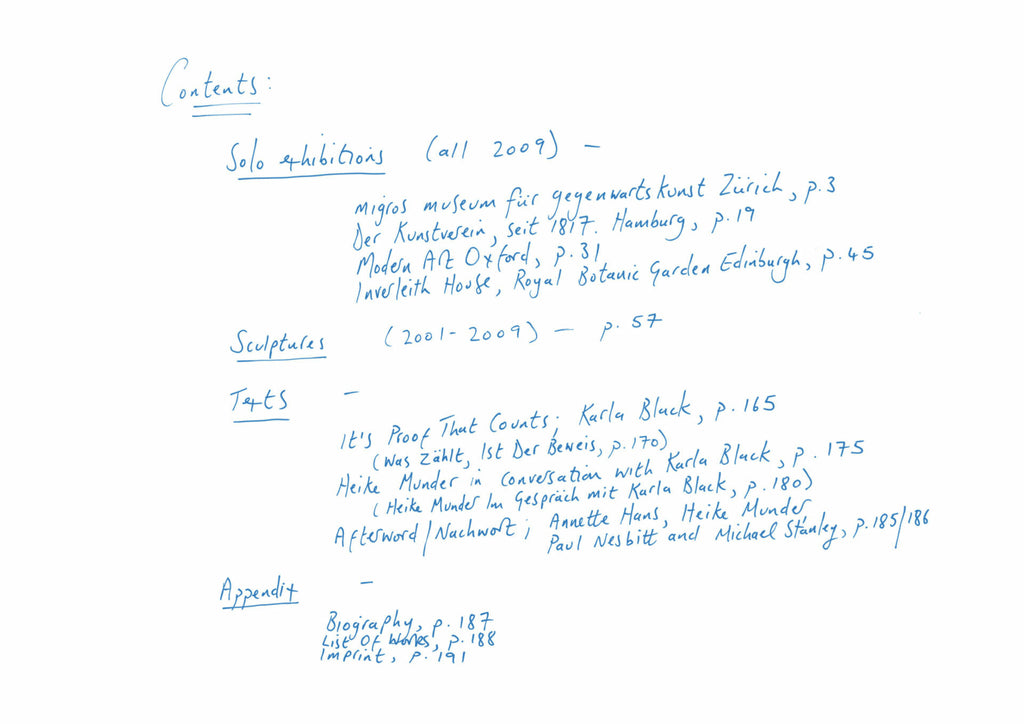 Contents:
Solo exhibitions (all 2009) –
migros museum für gegenwartskunst Zürich, p.3
Der Kunstverein, seit 1817. Hamburg, p.19
Modern Art Oxford, p.31
Inverleith House, Royal Botanic Garden Edinburgh, p.45
Sculptures (2001-2009) – p. 57
Texts –
It's Proof That Counts; Karla Black, p.165
(Was Zählt, Ist Der Beweis, p.170)
Heike Munder in conversation with Karla Black, p. 175
(Heike Munder Im Gespräch mit Karla Black, p.180)
Afterword/Nachwort; Annette Hans, Heike Munder,
Paul Nesbitt and Michael Stanley, p.185/186
Appendix –
Biography, p. 187
List Of Works, p.188
Imprint, p. 191